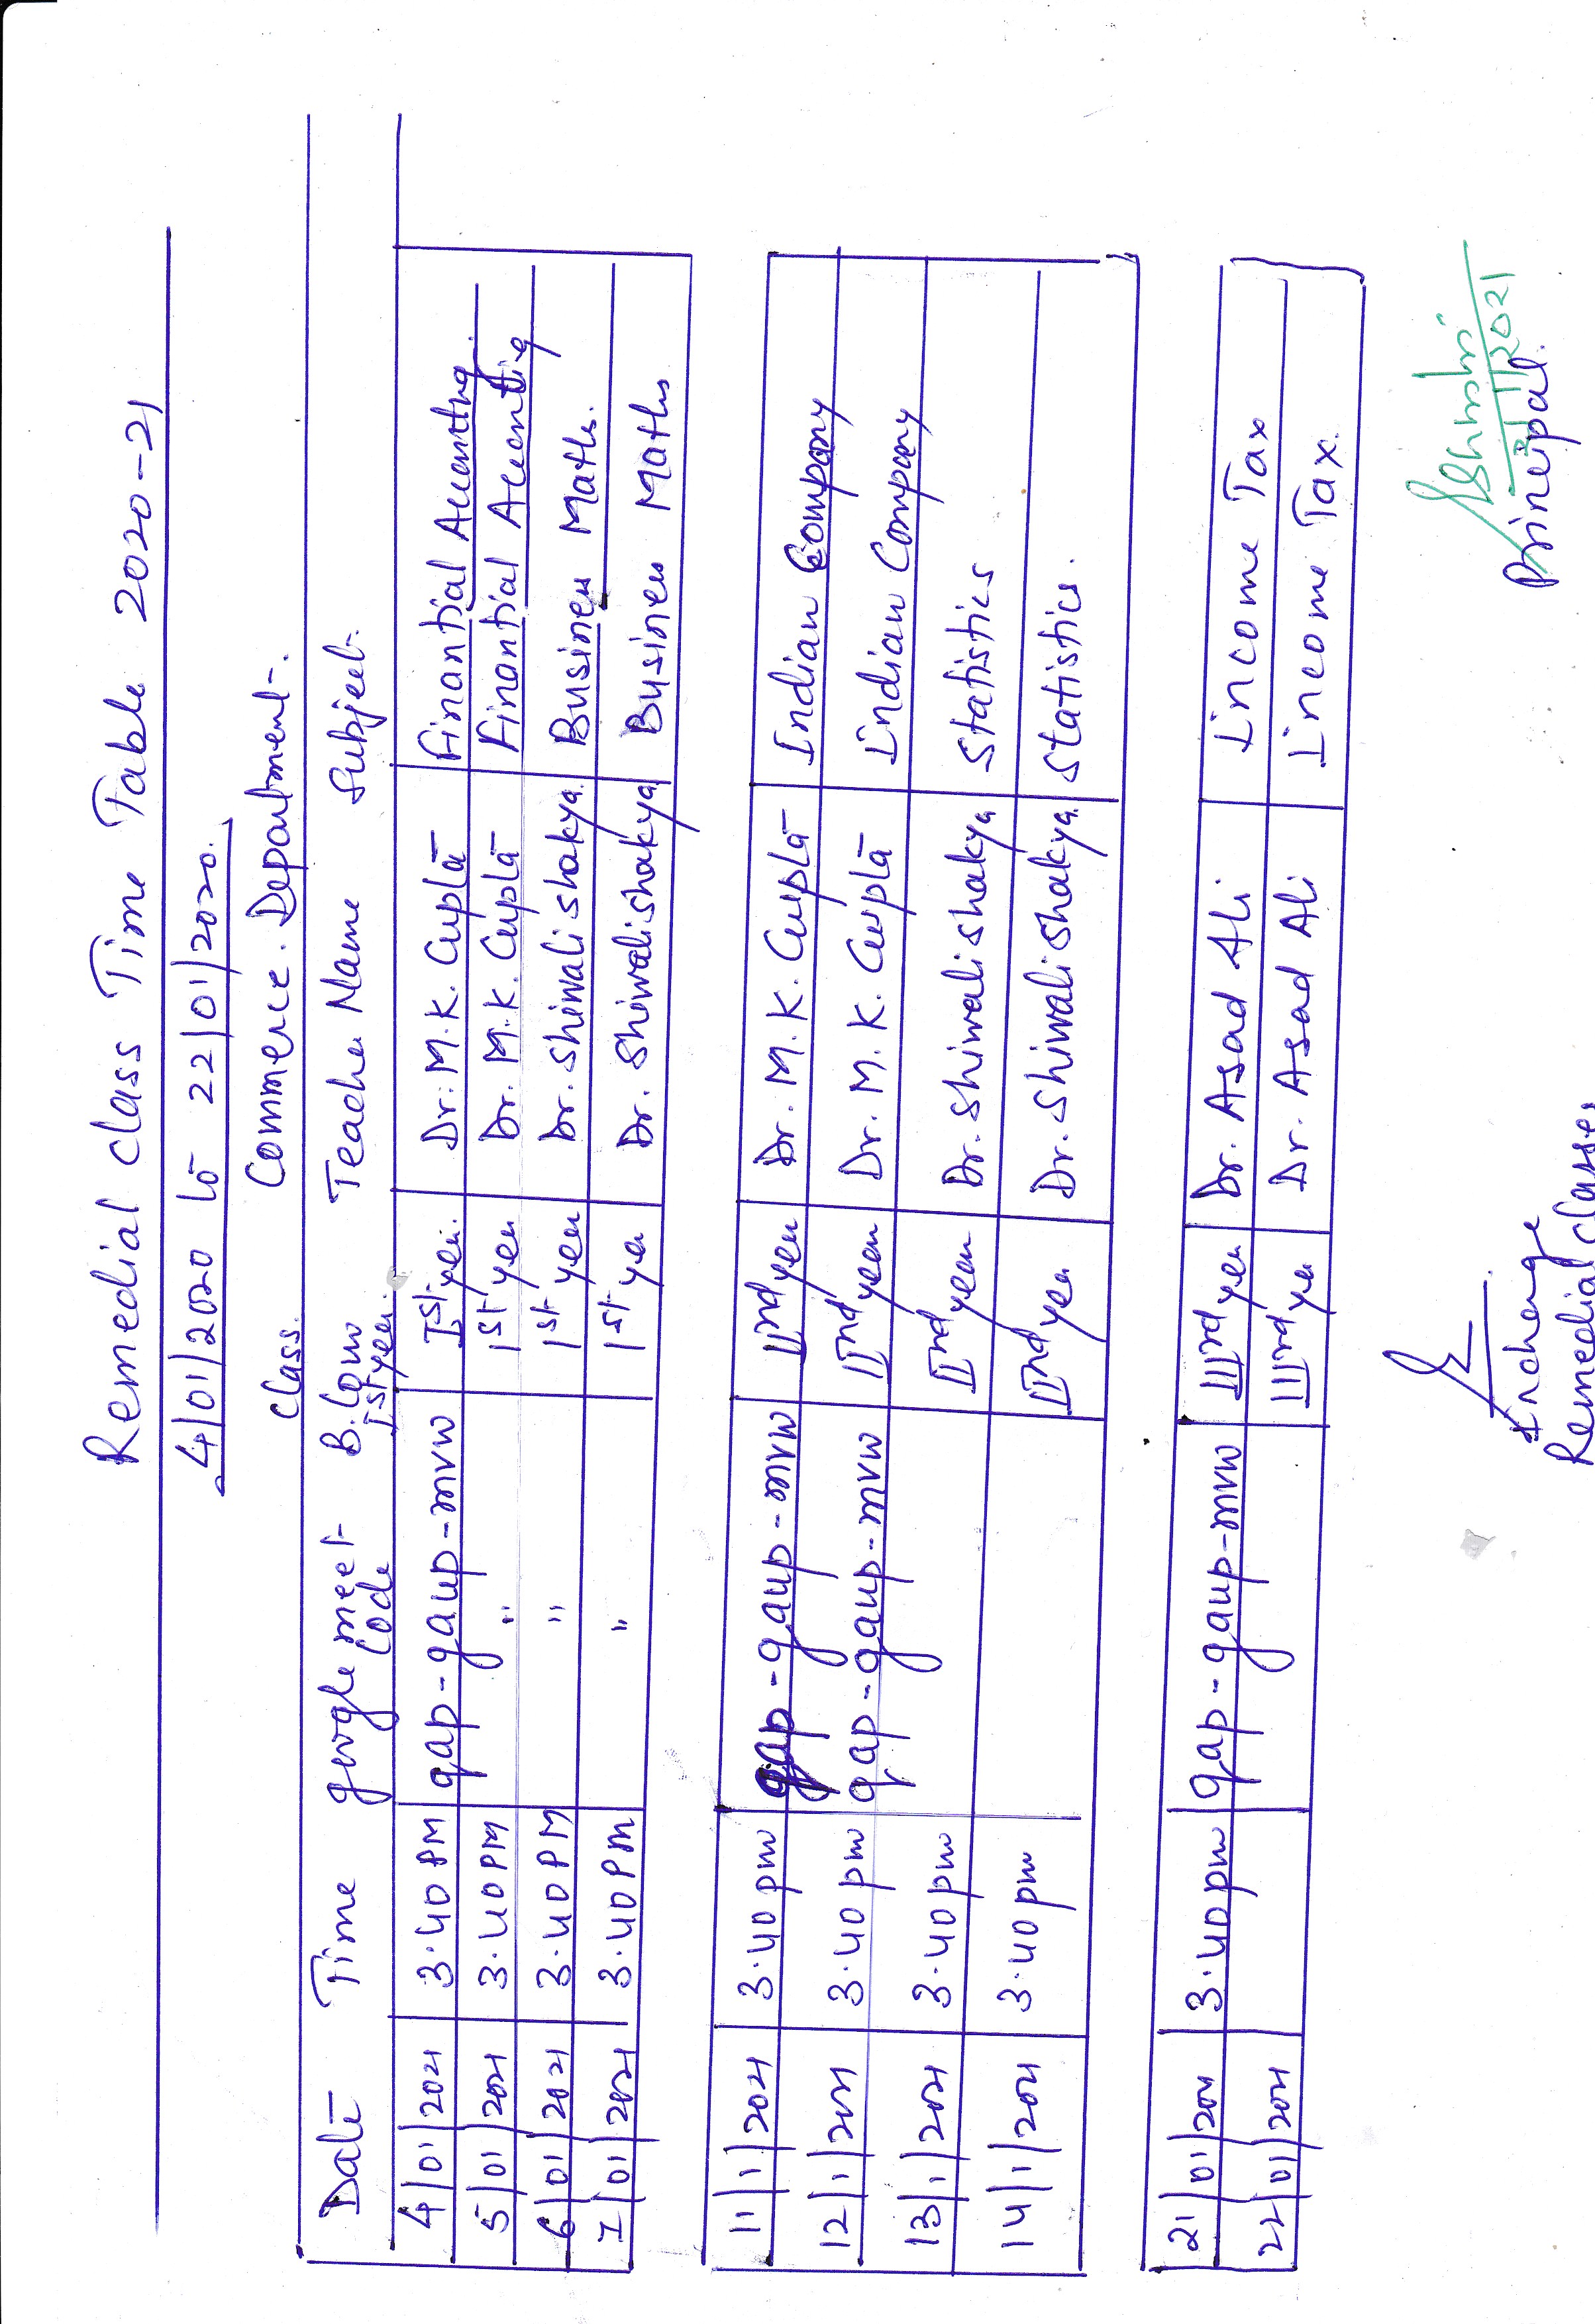 Remedial class Time Table 2020-21
4/01/2020 to 22/01/2020.
Commerce. Department.
Date Time google meet code class. B.Com Ist year. Teacher Name Subject
4/01/2021 3.40 PM qap-gaup-mvw Ist year. Dr. M.K. Gupta Finantial Accounting.
5/01/2021 3.40 PM " 1st year Dr. M.K. Gupta Finantial Accounting
6/01/2021 3.40 PM " 1st year Dr. Shiwali shakya. Business Maths.
7/01/2021 3.40 PM " 1st year Dr. Shiwali shakya Business Maths
11/1/2021 3.40 pm qap-gaup-mvw IInd year Dr. M.K. Gupta Indian Company
12/1/2021 3.40 pm qap-gaup-mvw IInd year Dr. M.K. Gupta Indian Company
13/1/2021 3.40 pm IInd year Dr. Shiwali shakya Statistics
14/1/2021 3.40 pm IInd year Dr. Shiwali shakya. Statistics.
21/01/2021 3.40 pm qap-gaup-mvw IIIrd year Dr. Asad Ali Income Tax
22/01/2021 IIIrd year Dr. Asad Ali Income Tax.
Incharge
Remedial classes
Principal.